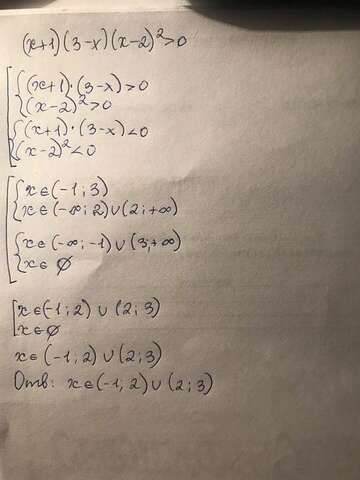 (x+1)(3-x)(x-2)²>0
(x+1)·(3-x)>0
(x-2)²>0
(x+1)·(3-x)<0
(x-2)²<0
x∈(-1;3)
x∈(-∞;2)∪(2;+∞)
x∈(-∞;-1)∪(3;+∞)
x∈ ∅
x∈(-1;2)∪(2;3)
x∈∅
x∈(-1;2)∪(2;3)
Отв: x∈(-1;2)∪(2;3)